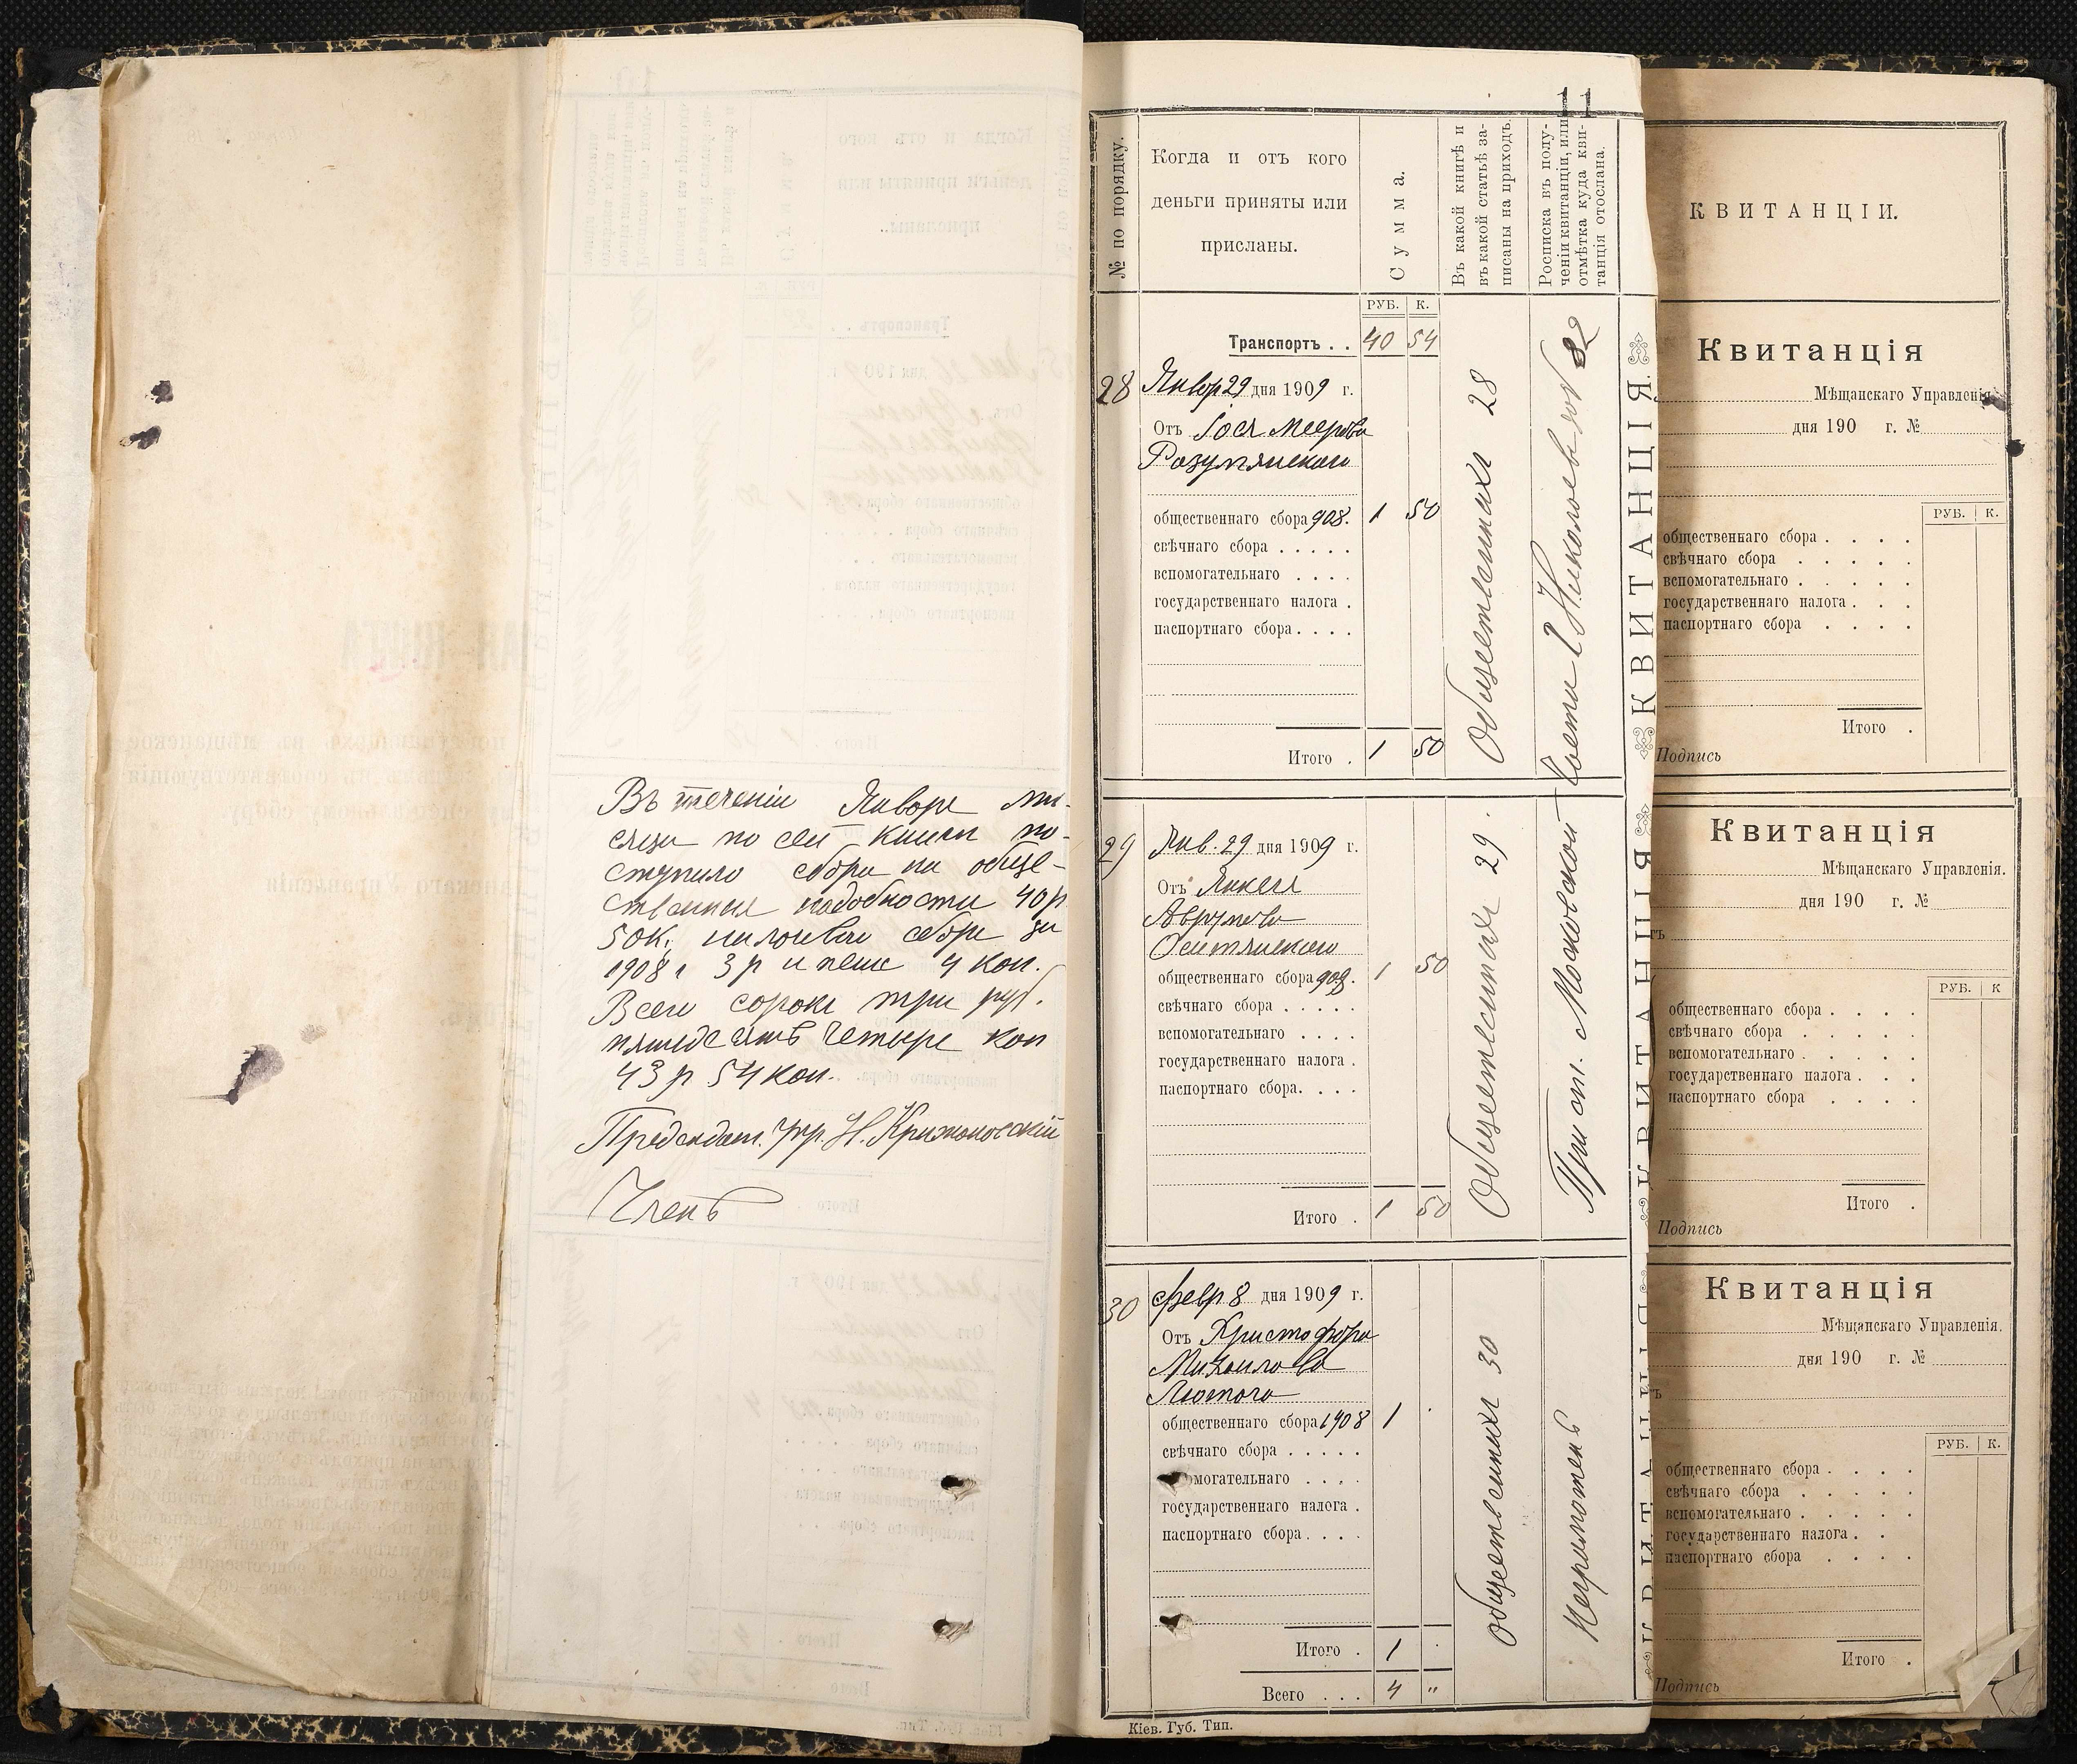 Въ теченіи Январе мѣ-
сяца по сей книги по-
ступило сбора на обще-
ственныя надобности 40 р
50 к, сбора за
1908 г 3 р и пени 4 коп.
Всего сорокъ три руб.
пятьдесятъ четыре коп
43 р 54 коп.
Предсѣдат. Упр. Н. Крижановскій
Членъ
11
№ по порядку.
Когда и отъ кого
деньги приняты или
присланы.
Сумма.
Въ какой книгѣ и
въ какой статьѣ за-
писаны на приходъ.
Росписка въ полу-
ченіи квитанціи, или
отмѣтка куда кви-
танція отослана.
РУБ. К.
Транспортъ . . 40 54
28 Январ 29 дня 1909 г.
Отъ Іося Меерова
Разумянскаго
общественнаго сбора 908. 1 50
свѣчнаго сбора . . . . .
вспомогательнаго . . . .
государственнаго налога .
паспортнаго сбора . . . .
Итого . 1 50
Общественныхъ 28
29 Янв. 29 дня 1909 г.
Отъ Янкеля
Аврумова
Оситянскаго
общественнаго сбора 909. 1 50
свѣчнаго сбора . . . . .
вспомогательнаго . . . .
государственнаго налога .
паспортнаго сбора. . . .
Итого . 1 50
Общественныхъ 29.
При от. Макавской волости 2 Николаев 82
30 Февр 8 дня 1909 г.
Отъ Христофора
Михайлова
Лютого
общественнаго сбора 1908 1 .
свѣчнаго сбора . . . . .
вспомогательнаго . . . .
государственнаго налога .
паспортнаго сбора . . . .
Итого . 1 .
Всего . . . 4 "
Общественныхъ 30
Неграмотенъ
Кіев. Губ. Тип.
КВИТАНЦІЯ
КВИТАНЦІЯ
КВИТАНЦІЯ
КВИТАНЦІИ.
Квитанція
Мѣщанскаго Управленія.
дня 190 г. №
РУБ. К.
общественнаго сбора . . . .
свѣчнаго сбора . . . . .
вспомогательнаго . . . . .
государственнаго налога . . .
паспортнаго сбора . . . .
Итого .
Подпись
Квитанція
Мѣщанскаго Управленія.
дня 190 г. №
тъ
РУБ. К
общественнаго сбора . . . .
свѣчнаго сбора . . . . .
вспомогательнаго . . . . .
государственнаго налога . . .
паспортнаго сбора . . . .
Итого .
Подпись
Квитанція
Мѣщанскаго Управленія.
дня 190 г. №
тъ
РУБ. К.
общественнаго сбора . . . .
свѣчнаго сбора . . . . .
вспомогательнаго . . . . .
государственнаго налога . .
паспортнаго сбора . . . .
Итого .
Подпись